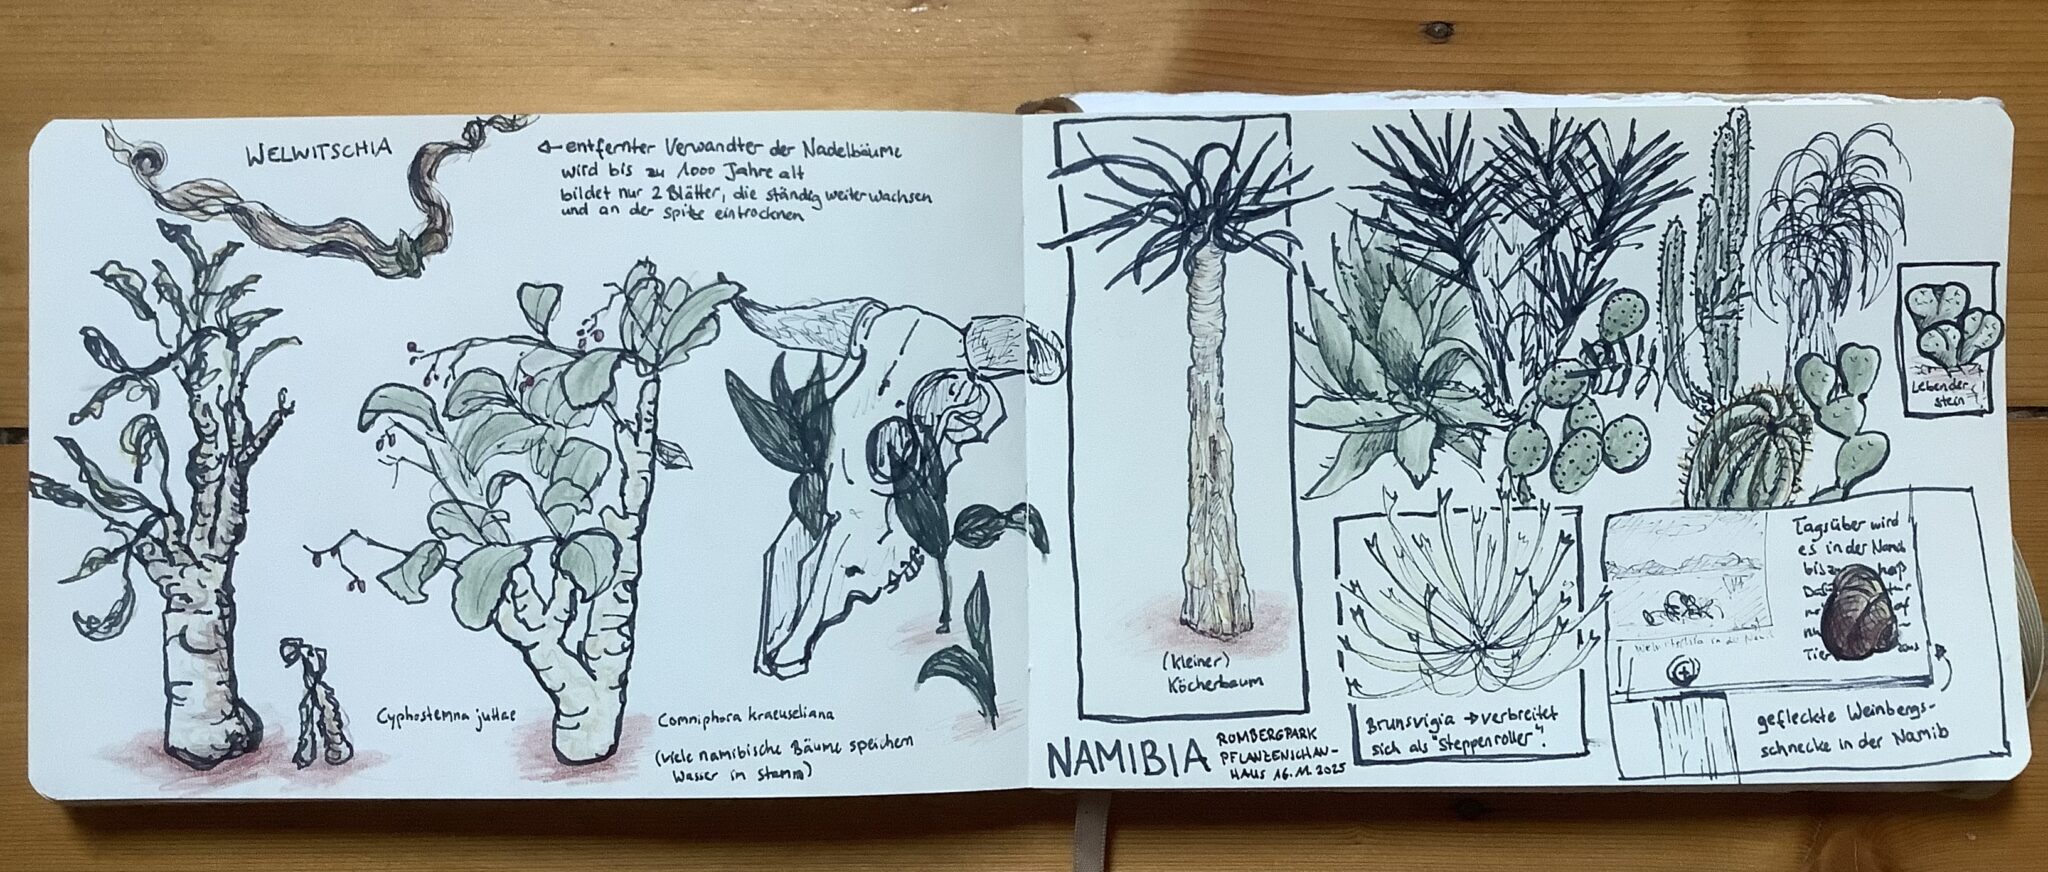 WELWITSCHIA
entfernter Verwandter der Nadelbäume
wird bis zu 1000 Jahre alt
bildet nur 2 Blätter, die ständig weiterwachsen
und an der Spitze eintrocknen
Cyphostemna juttae
Comniphora kraeuseliana
(viele namibische Bäume speichern
Wasser im Stamm)
(kleiner)
Köcherbaum
NAMIBIA
ROMBERGPARK
PFLANZENSCHAU-
HAUS 16.11.2025
Brunsvigia → verbreitet
sich als "Steppenroller".
Lebender
Stein
!
Tagsüber wird
es in der Namib
bis zu
heiß
Tier
Welwitschia in der Namib
gefleckte Weinbergs-
schnecke in der Namib